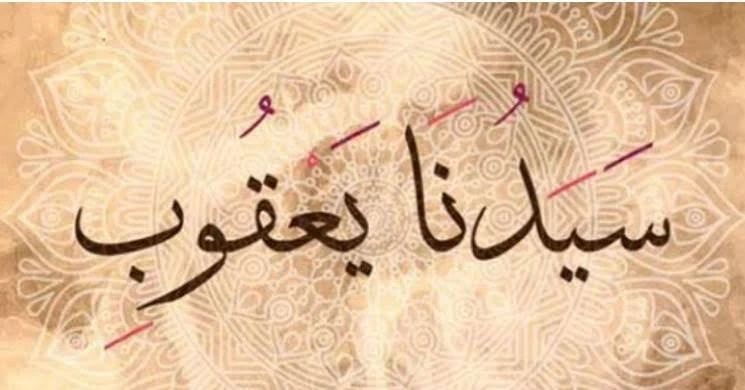 سَيَدُنَا يَعْقُوبِ